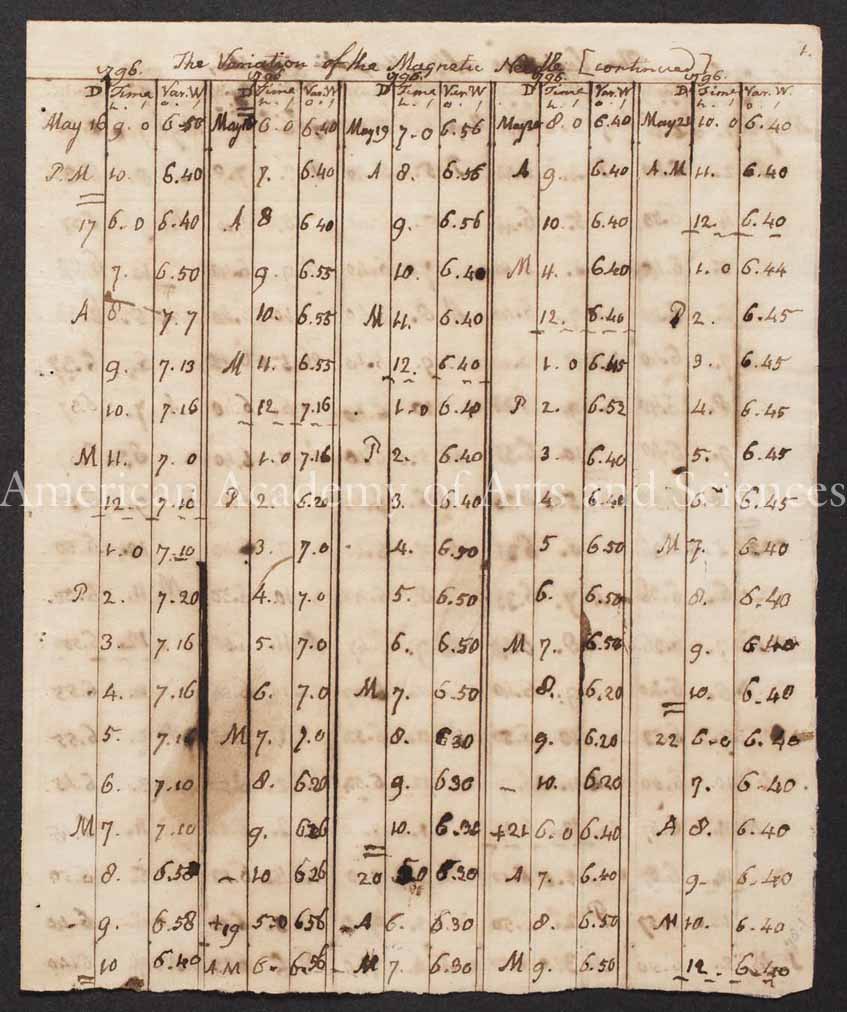 1.
The Variation of the Magnetic Needle [continued]
1796. 1796 1796. 1796. 1796.
D Time Var. W D Time Var. W D Time Var. W D Time Var. W D Time Var. W.
h. / o. / h. / o. / h. / o. / h. / o. / h. / o. /
May 16 9. 0 6.50 May 18 6. 0 6.40 May 19 7.0 6.56 May 20 8. 0 6.40 May 21 10. 0 6.40
P.M 10. 6.40 7. 6.40 A 8. 6.56 A 9. 6.40 A.M 11. 6.40
17 6. 0 6.40 A 8 6.40 9. 6.56 10. 6.40 12. 6.40
7. 6.50 9. 6.55 10. 6.40 M 11. 6.40 1. 0 6.44
A 8. 7.7 10. 6.55 M 11. 6.40 12. 6.40 P 2. 6.45
9. 7.13 M 11. 6.55 12. 6.40 1. 0 6.45 3. 6.45
10. 7.16 12 7.16 1.0 6.40 P 2. 6.52 4. 6.45
M 11. 7.0 1. 0 7.16 P 2. 6.40 3. 6.40 5. 6.45
American Academy of Arts and Sciences
12. 7.10 P 2. 6.26 3. 6.40 4. 6.40 6. 6.45
1. 0 7.10 3. 7.0 4. 6.50 5 6.50 M 7. 6.40
P. 2. 7.20 4. 7.0 5. 6.50 6. 6.50 8. 6.40
3. 7.16 5. 7.0 6. 6.50 M 7. 6.50 9. 6.40
4. 7.16 6. 7.0 M 7. 6.50 8. 6.20 10. 6.40
5. 7.16 M 7. 7.0 8. 6.30 9. 6.20 22 6.0 6.40
6. 7.10 8. 6.20 9. 6.30 10. 6.20 7. 6.40
M 7. 7.10 9. 6.26 10. 6.30 +21 6. 0 6.40 A 8. 6.40
8. 6.58 10 6.26 20 6.30 A 7. 6.40 9. 6.40
9. 6.58 +19 5.0 6.56 A 6. 6.30 8. 6.50 M 10. 6.40
10 6.40 A M 6. 6.56 M 7. 6.30 M 9. 6.50 12. 6.40